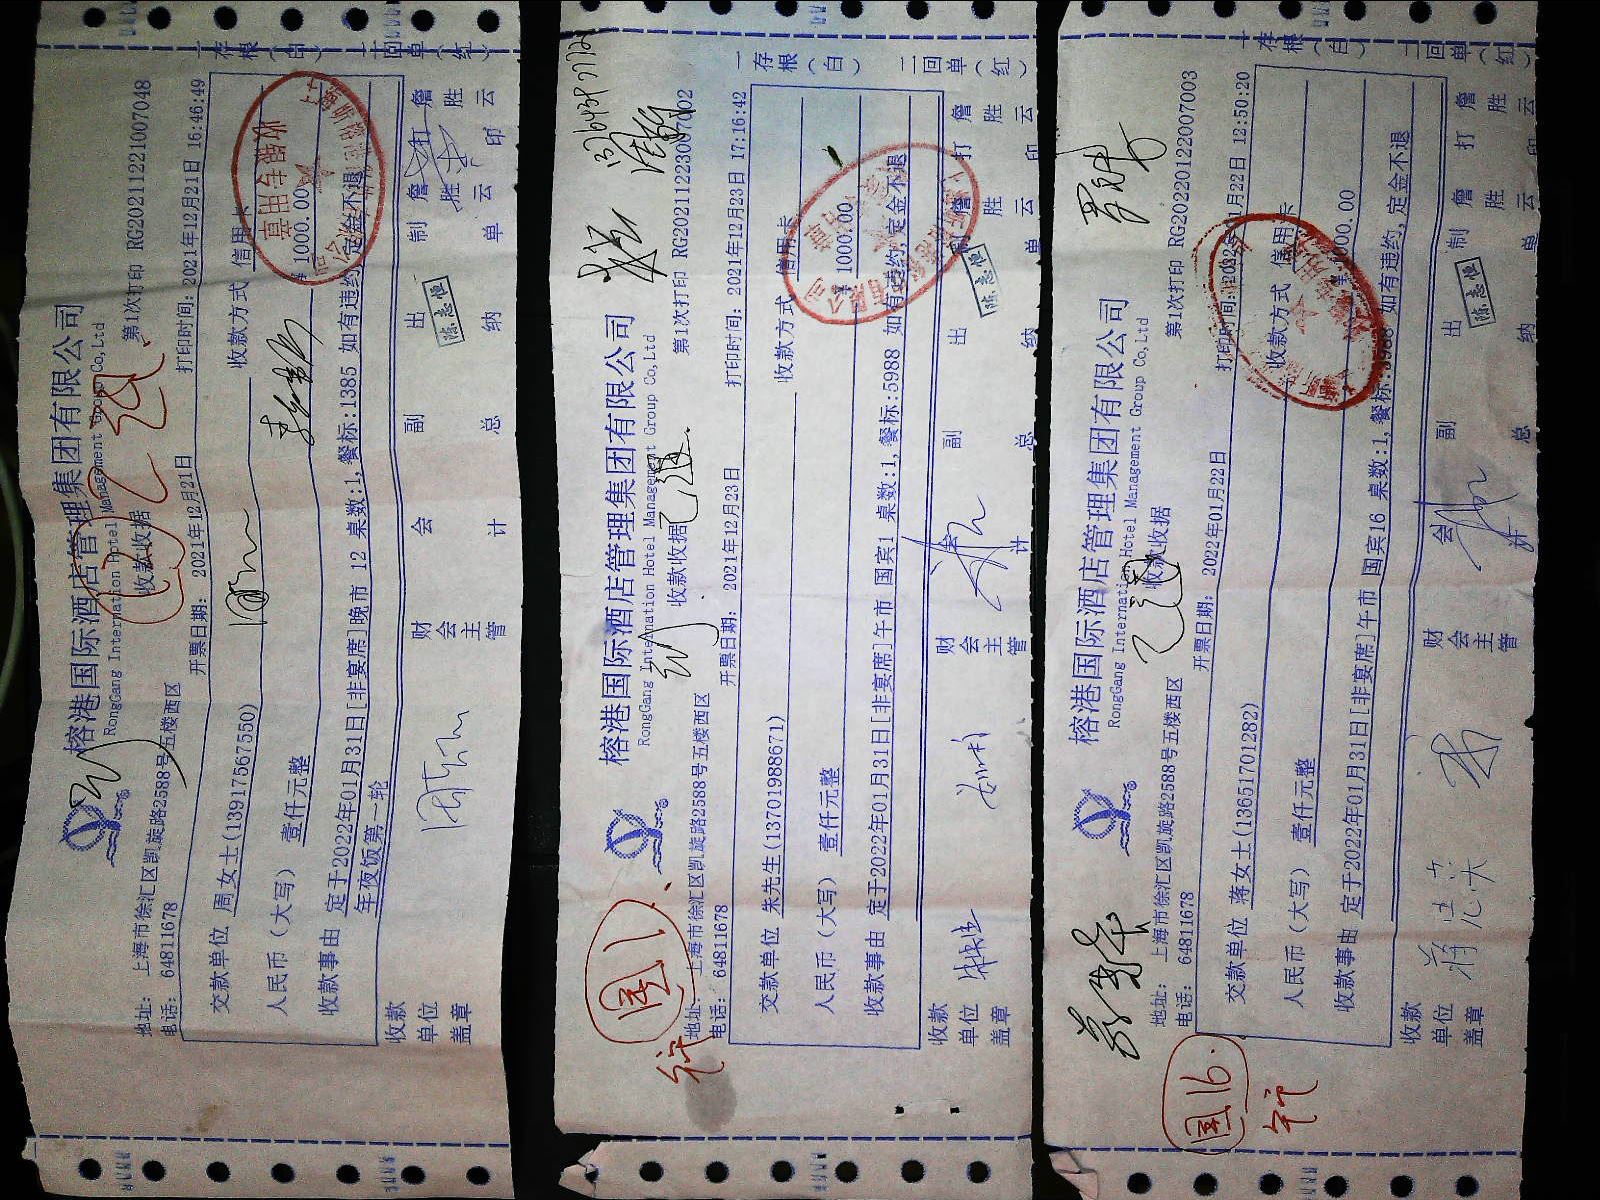 一存根（白） 二回单（红）
榕港国际酒店管理集团有限公司
RongGang International Hotel Management Group Co,Ltd
收款收据
第1次打印 RG20211221007048
地址： 上海市徐汇区凯旋路2588号五楼西区
电话： 64811678
开票日期： 2021年12月21日
打印时间：2021年12月21日 16:46:49
交款单位 周女士(13917567550)
收款方式 信用卡
人民币（大写） 壹仟元整
¥ 1000.00
收款事由 定于2022年01月31日[非宴席]晚市 12 桌数:1,餐标:1385 如有违约,定金不退
年夜饭第一轮
收款单位盖章
财会主管
会计
副总
出纳
陈志恒
制单 詹胜云
打印 詹胜云
一存根（白） 二回单（红）
榕港国际酒店管理集团有限公司
RongGang International Hotel Management Group Co,Ltd
收款收据
第1次打印 RG20211223007002
地址： 上海市徐汇区凯旋路2588号五楼西区
电话： 64811678
开票日期： 2021年12月23日
打印时间：2021年12月23日 17:16:42
国1
交款单位 朱先生(13701988671)
收款方式 信用卡
人民币（大写） 壹仟元整
¥ 1000.00
收款事由 定于2022年01月31日[非宴席]午市 国宾1 桌数:1,餐标:5988 如有违约,定金不退
收款单位盖章
财会主管
会计
副总
出纳
陈志恒
制单 詹胜云
打印 詹胜云
一存根（白） 二回单（红）
榕港国际酒店管理集团有限公司
RongGang International Hotel Management Group Co,Ltd
收款收据
第1次打印 RG20220122007003
地址： 上海市徐汇区凯旋路2588号五楼西区
电话： 64811678
开票日期： 2022年01月22日
打印时间：2022年01月22日 12:50:20
国16
交款单位 蒋女士(13651701282)
收款方式 信用卡
人民币（大写） 壹仟元整
¥ 1000.00
收款事由 定于2022年01月31日[非宴席]午市 国宾16 桌数:1,餐标:5988 如有违约,定金不退
收款单位盖章
财会主管
会计
副总
出纳
陈志恒
制单 詹胜云
打印 詹胜云